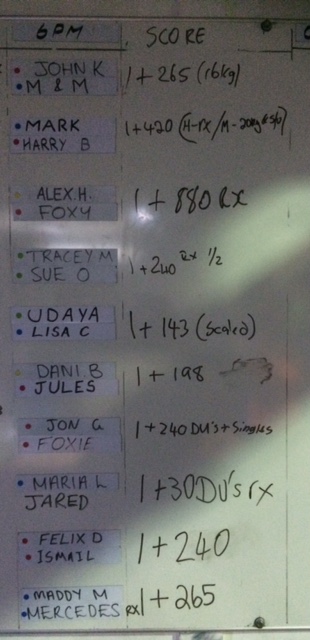 6PM SCORE
JOHN K 1+265 (16kg)
M & M
MARK 1+420
HARRY B
ALEX.H. 1+880 RX
FOXY
TRACEY M 1+240 RX 1/2
SUE O
UDAYA 1+143 (Scaled)
LISA C
DANI B 1+198
JULES
JON G 1+240 DU's+Singles
FOXIE
MARIA L 1+30DU's rx
JARED
FELIX D 1+240
ISMAIL
MADDY M RX 1+265
MERCEDES